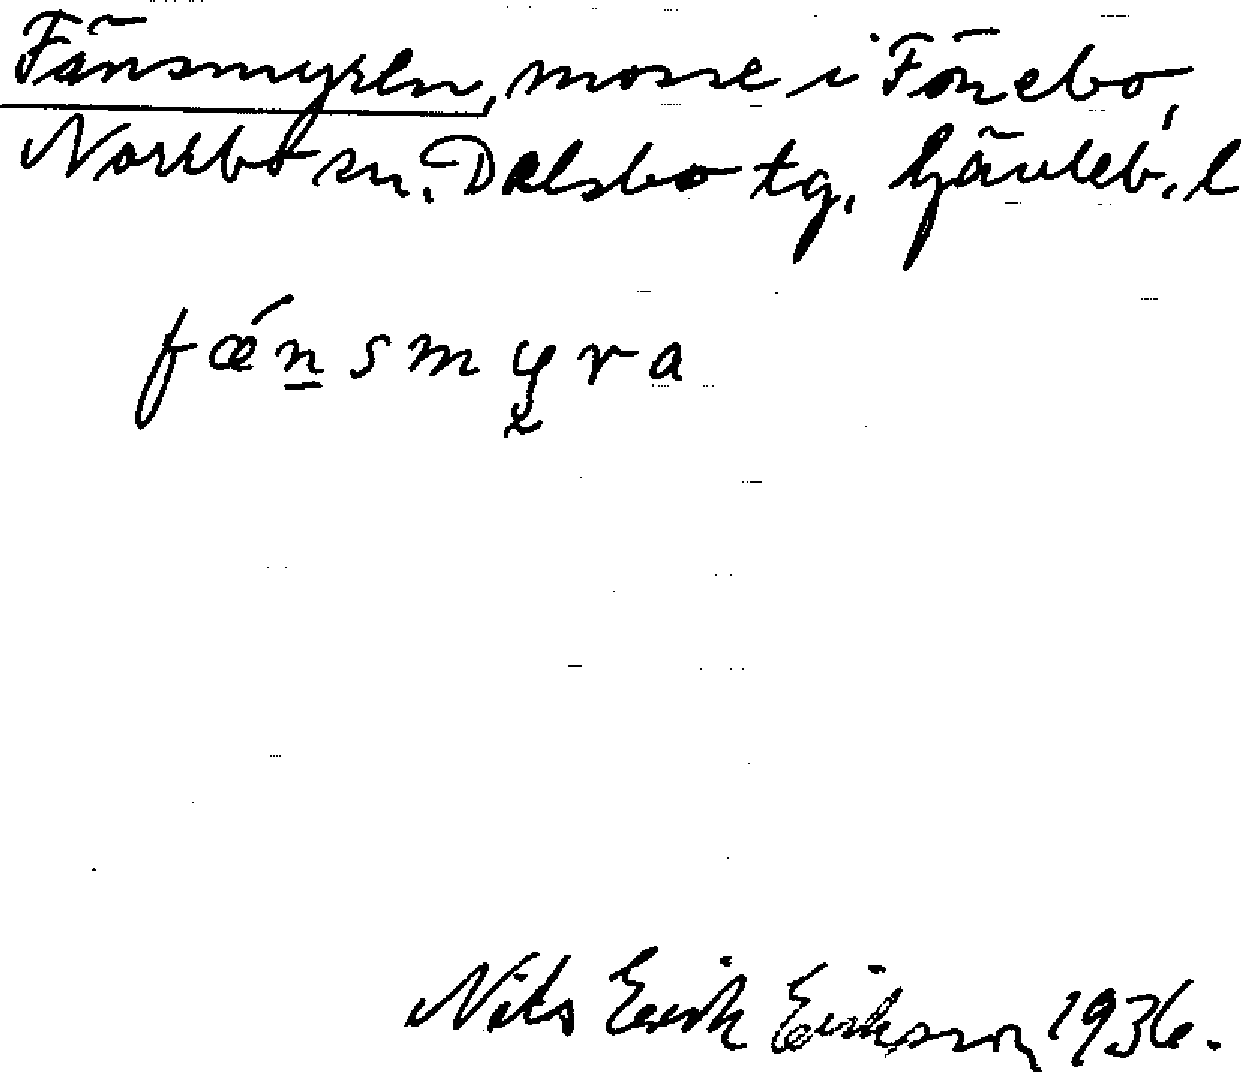 Fänsmyren, mosse i Fönebo,
Norrbo sn. Delsbo tg, Gävleb. l
fǽn̲smyra
Nils Erik Eriksson 1936.